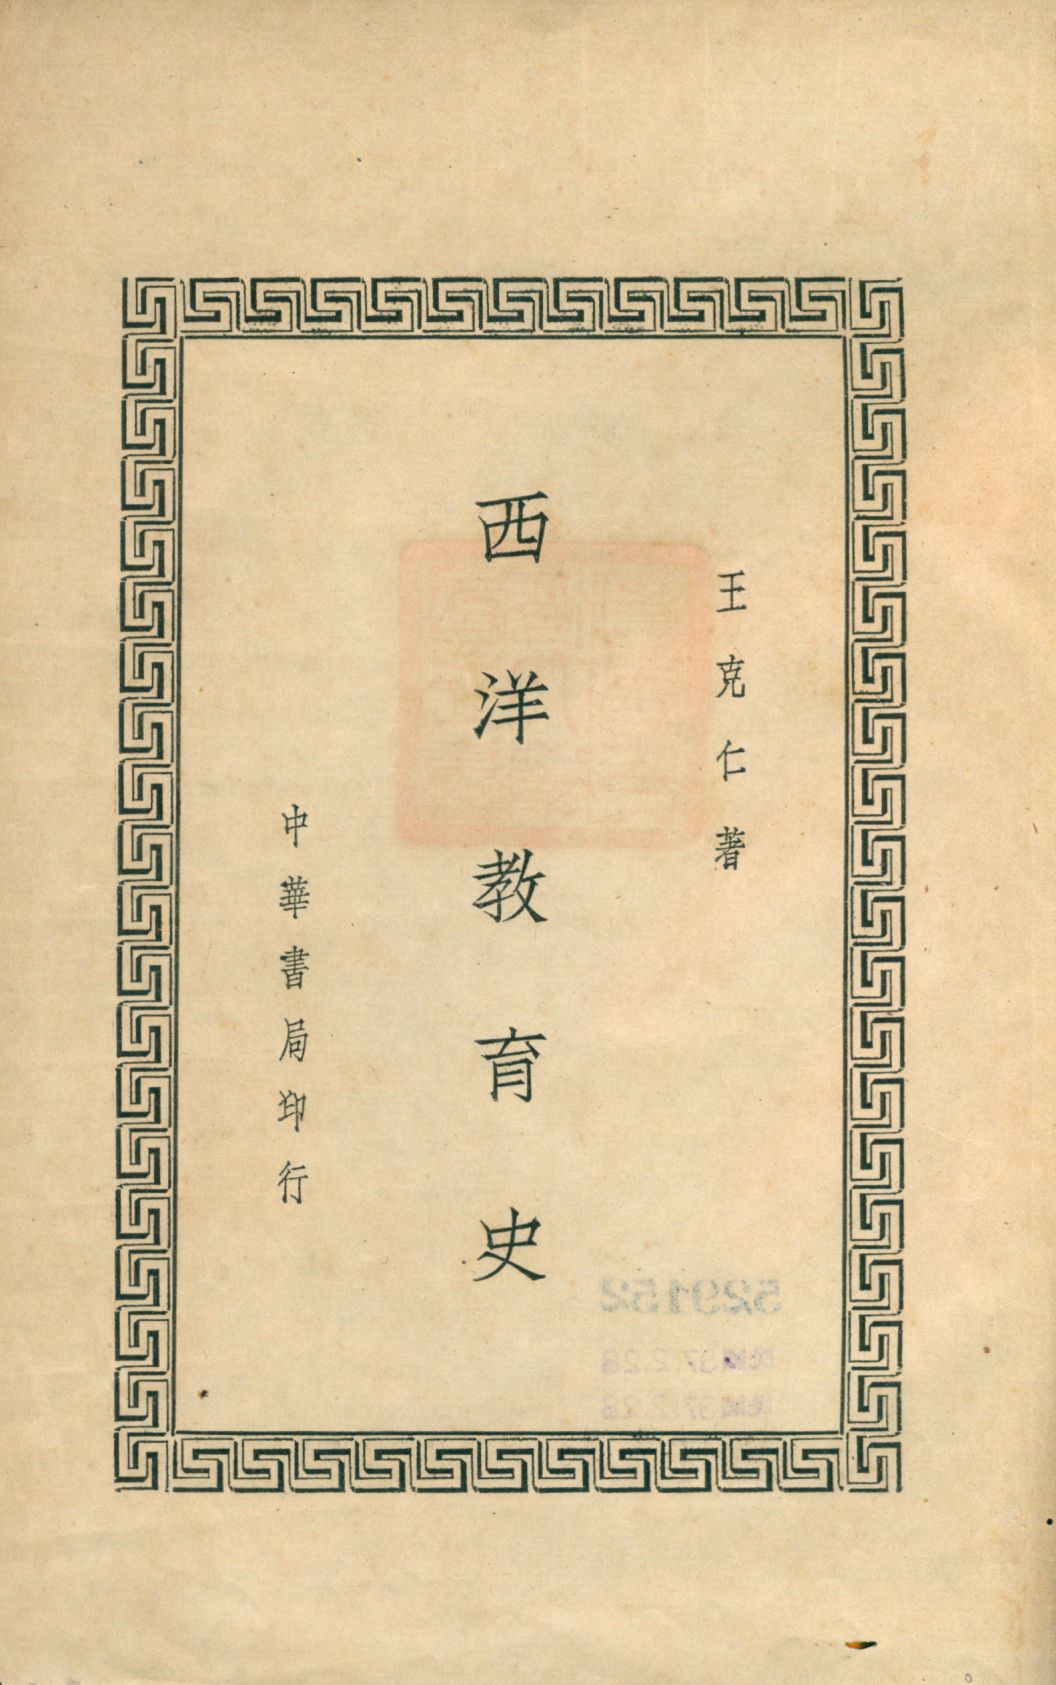 王克仁著
西洋教育史
中華書局印行
529152
民國37.2.28
民國37.2.28